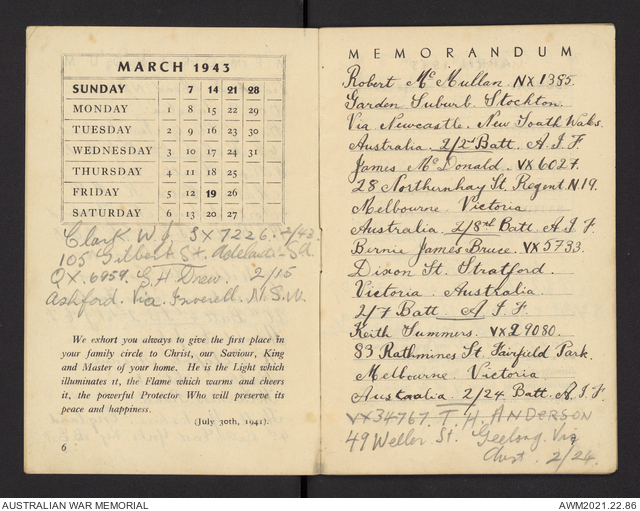 MARCH 1943
SUNDAY 7 14 21 28
MONDAY 1 8 15 22 29
TUESDAY 2 9 16 23 30
WEDNESDAY 3 10 17 24 31
THURSDAY 4 11 18 25
FRIDAY 5 12 19 26
SATURDAY 6 13 20 27
Clark W.J. SX7226. 2/43.
105 Gilbert St. Adelaide SA
QX.6959. G H Drew 2/15
Ashford. Via. Inverell. N.S.W.
We exhort you always to give the first place in
your family circle to Christ, our Saviour, King
and Master of your home. He is the Light which
illuminates it, the Flame which warms and cheers
it, the powerful Protector Who will preserve its
peace and happiness.
(July 30th, 1941).
6
MEMORANDUM
Robert McMullan. NX1385.
Garden Suburb. Stockton.
Via Newcastle. New South Wales.
Australia. 2/2nd Batt. A.I.F.
James McDonald. VX6027.
28 Northernhay St. Regent N19.
Melbourne. Victoria.
Australia. 2/8th Batt. A.I.F.
Bernie James Bruce. VX5733.
Dixon St. Stratford.
Victoria. Australia.
2/7 Batt. A.I.F.
Keith Summers. VX29080.
83 Rathmines St. Fairfield Park.
Melbourne. Victoria
Australia. 2/24 Batt. A.I.F.
VX34767. T. H. ANDERSON
49 Weller St. Geelong. Vic
Aust. 2/24.
AUSTRALIAN WAR MEMORIAL
AWM2021.22.86